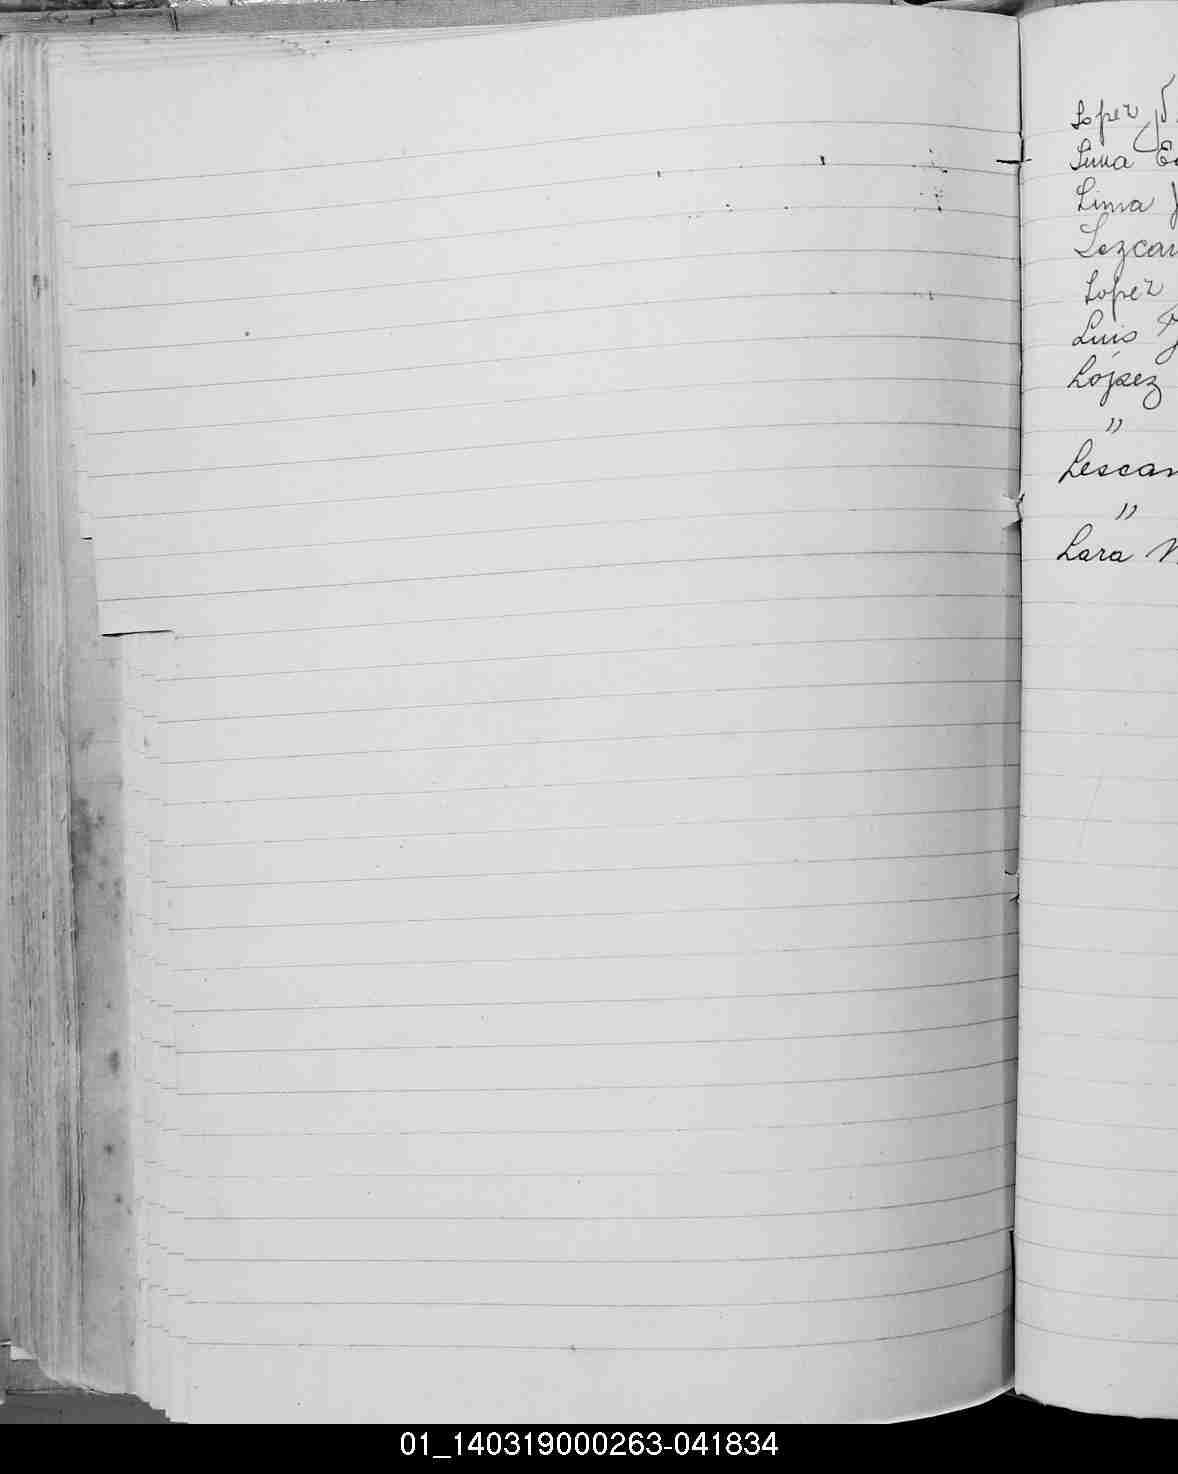 Lopez
Luna
Lima
Lezcan
Lopez
Luis
López
"
Lescan
"
Lara
01_140319000263-041834